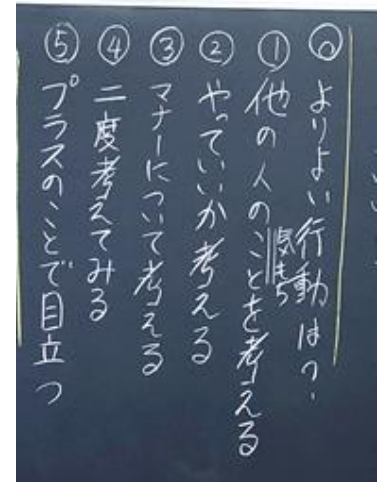 ◎よりよい行動は?
①他の人のことを考える
気もち
②やっていいか考える
③マナーについて考える
④二度考えてみる
⑤プラスのことで目立つ